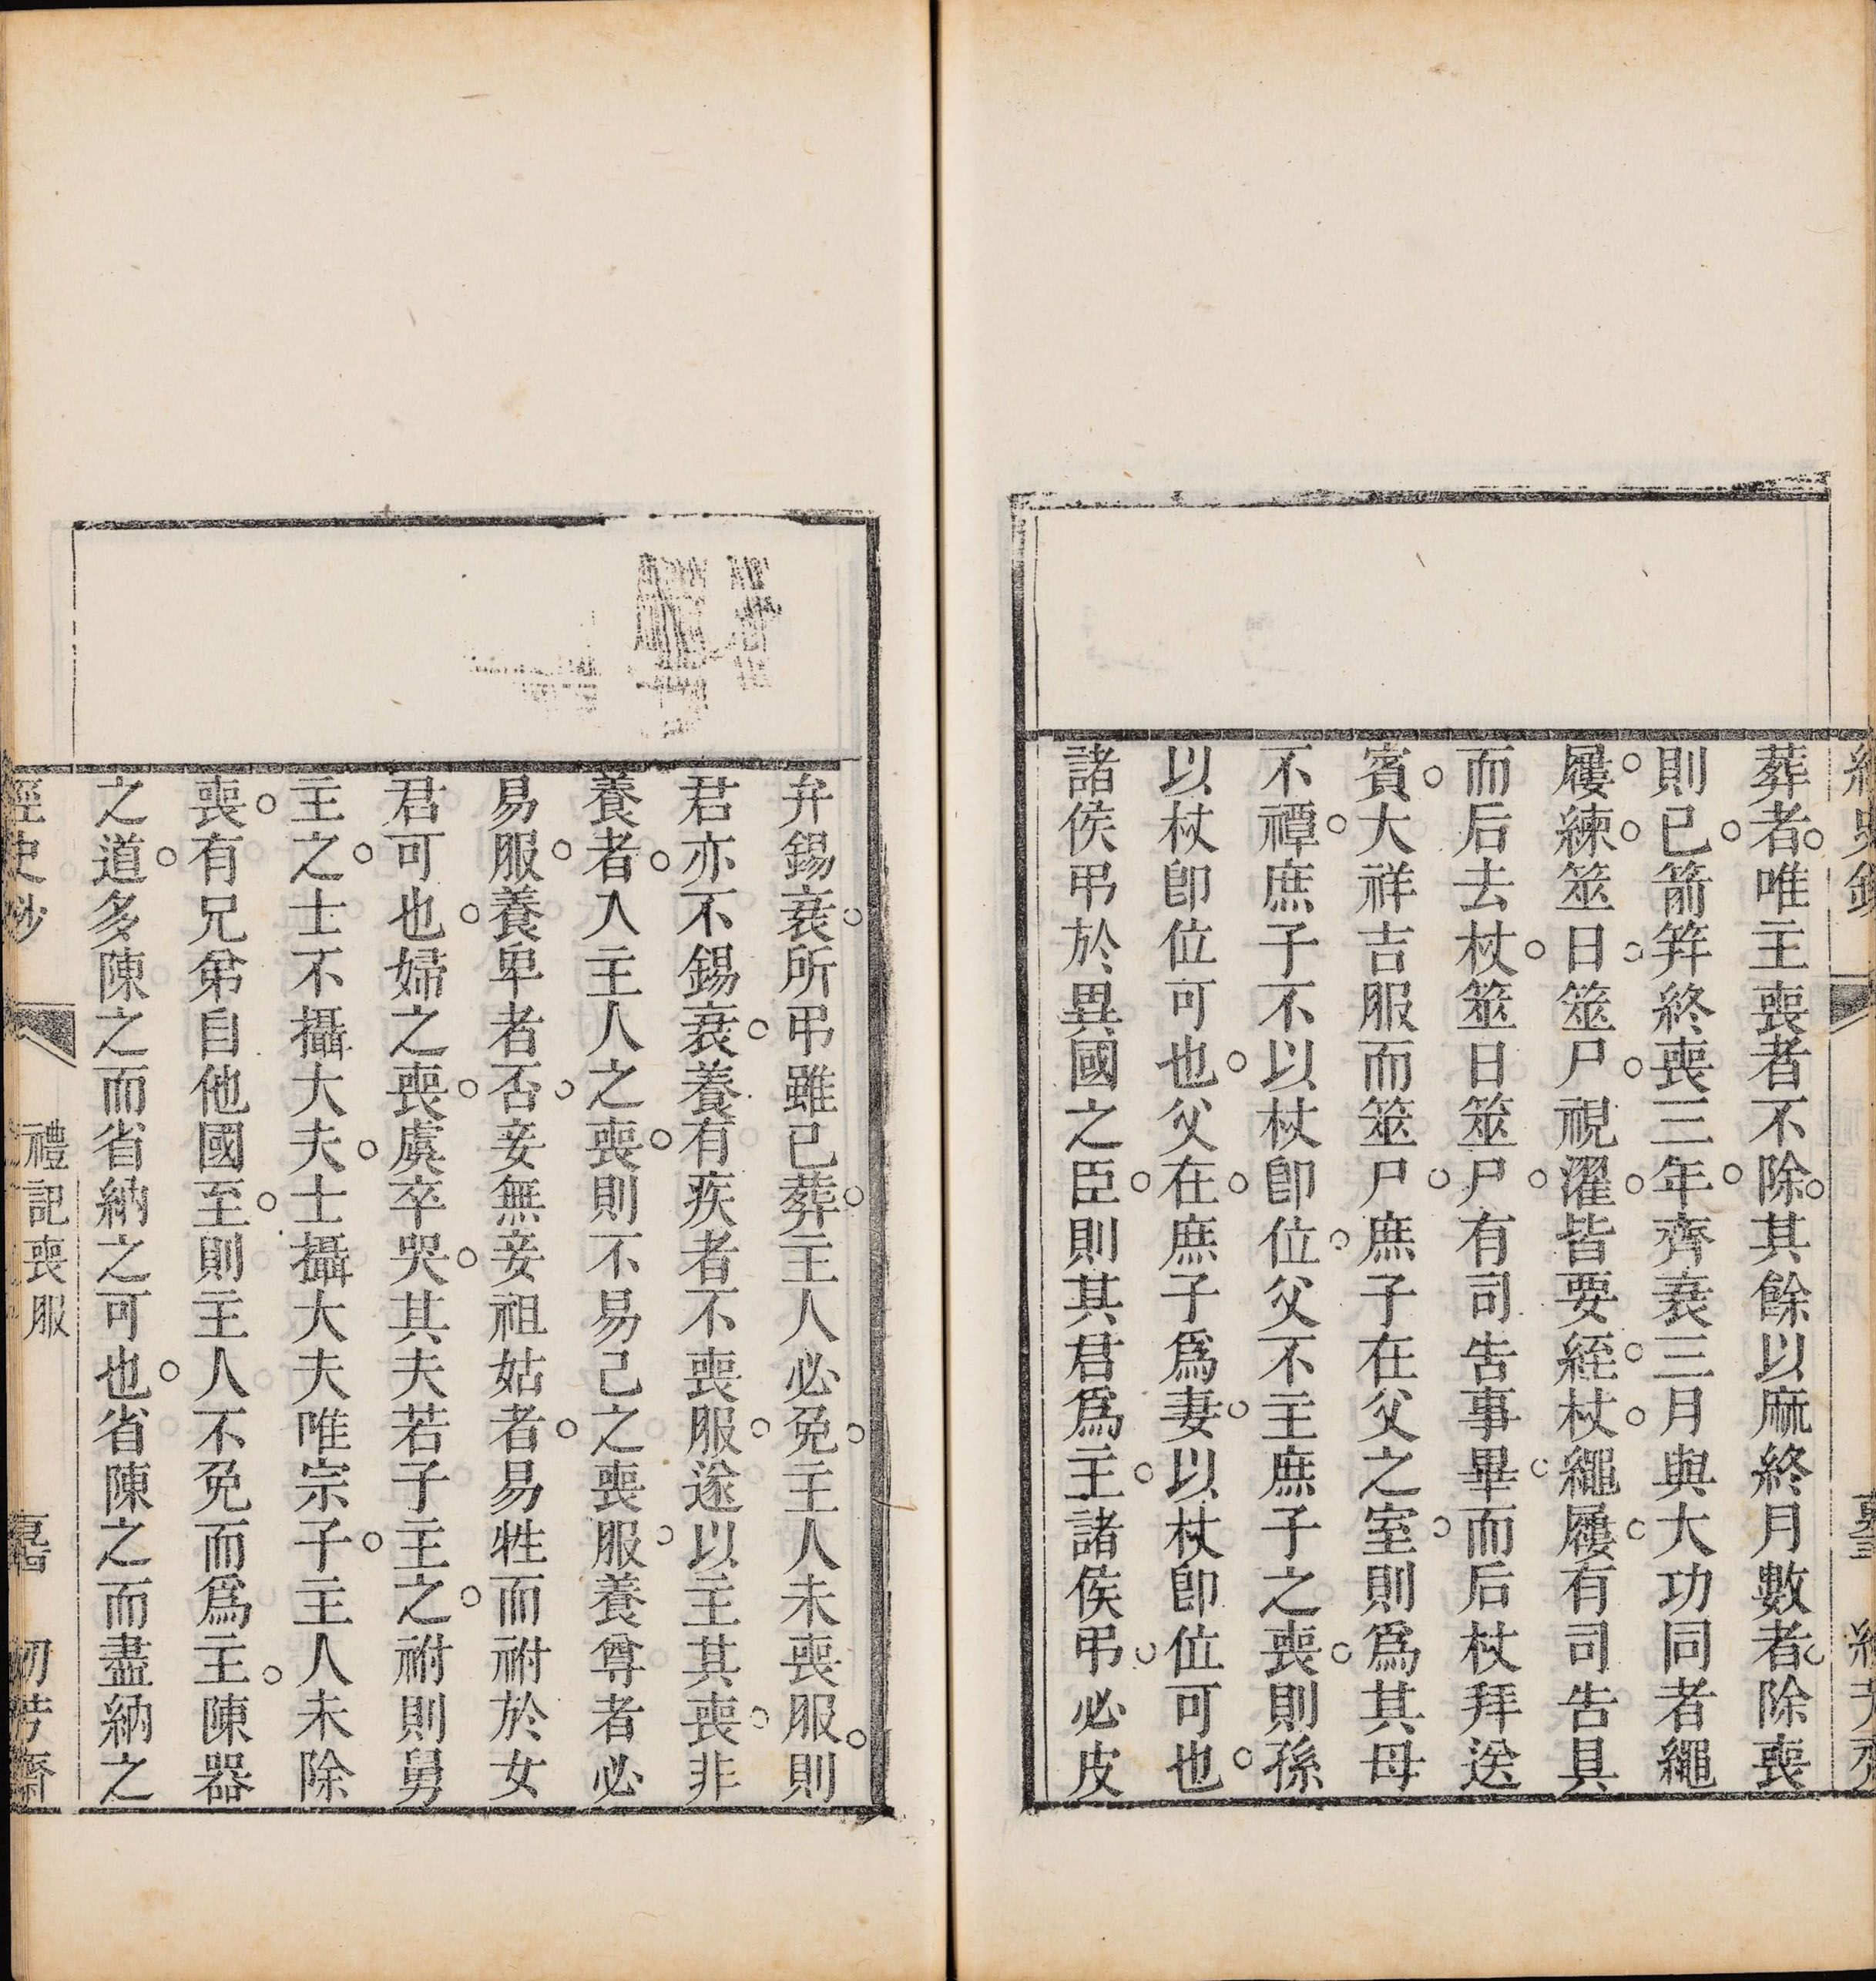 葬者唯主喪者不除其餘以麻終月數者除喪
則已箭笄終喪三年齊衰三月與大功同者繩
屨練筮日筮尸視濯皆要絰杖繩屨有司告具
而后去杖筮日筮尸有司告事畢而后杖拜送
賓大祥吉服而筮尸庶子在父之室則爲其母
不禫庶子不以杖卽位父不主庶子之喪則孫
以杖卽位可也父在庶子爲妻以杖卽位可也
諸侯弔於異國之臣則其君爲主諸侯弔必皮
弁錫衰所弔雖已葬主人必免主人未喪服則
君亦不錫衰養有疾者不喪服遂以主其喪非
養者入主人之喪則不易己之喪服養尊者必
易服養卑者否妾無妾祖姑者易牲而祔於女
君可也婦之喪虞卒哭其夫若子主之祔則舅
主之士不攝大夫士攝大夫唯宗子主人未除
喪有兄弟自他國至則主人不免而爲主陳器
之道多陳之而省納之可也省陳之而盡納之
經史鈔
禮記喪服